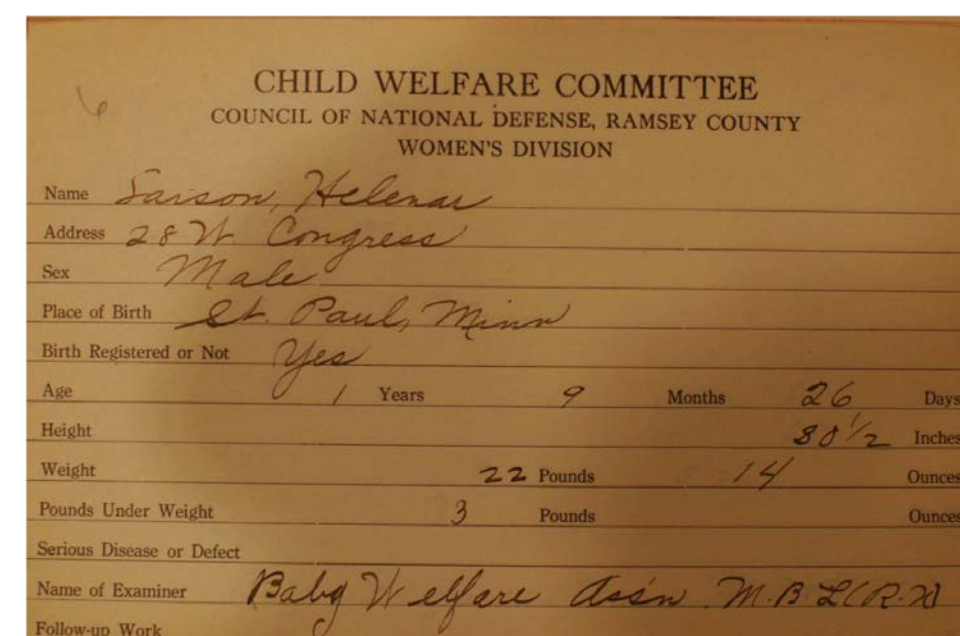 6
CHILD WELFARE COMMITTEE
COUNCIL OF NATIONAL DEFENSE, RAMSEY COUNTY
WOMEN'S DIVISION
Name Larson, Helenar
Address 28 W Congress
Sex Male
Place of Birth St. Paul, Minn
Birth Registered or Not Yes
Age 1 Years 9 Months 26 Days
Height 30 1/2 Inches
Weight 22 Pounds 14 Ounces
Pounds Under Weight 3 Pounds Ounces
Serious Disease or Defect
Name of Examiner Baby Welfare Ass'n M.B.L(R.N)
Follow-up Work